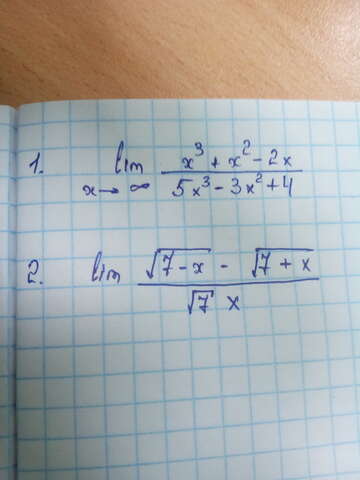 1. lim x→∞ (x³ + x² - 2x)/(5x³ - 3x² + 4)
2. lim (√(7-x) - √(7+x))/(√7 x)